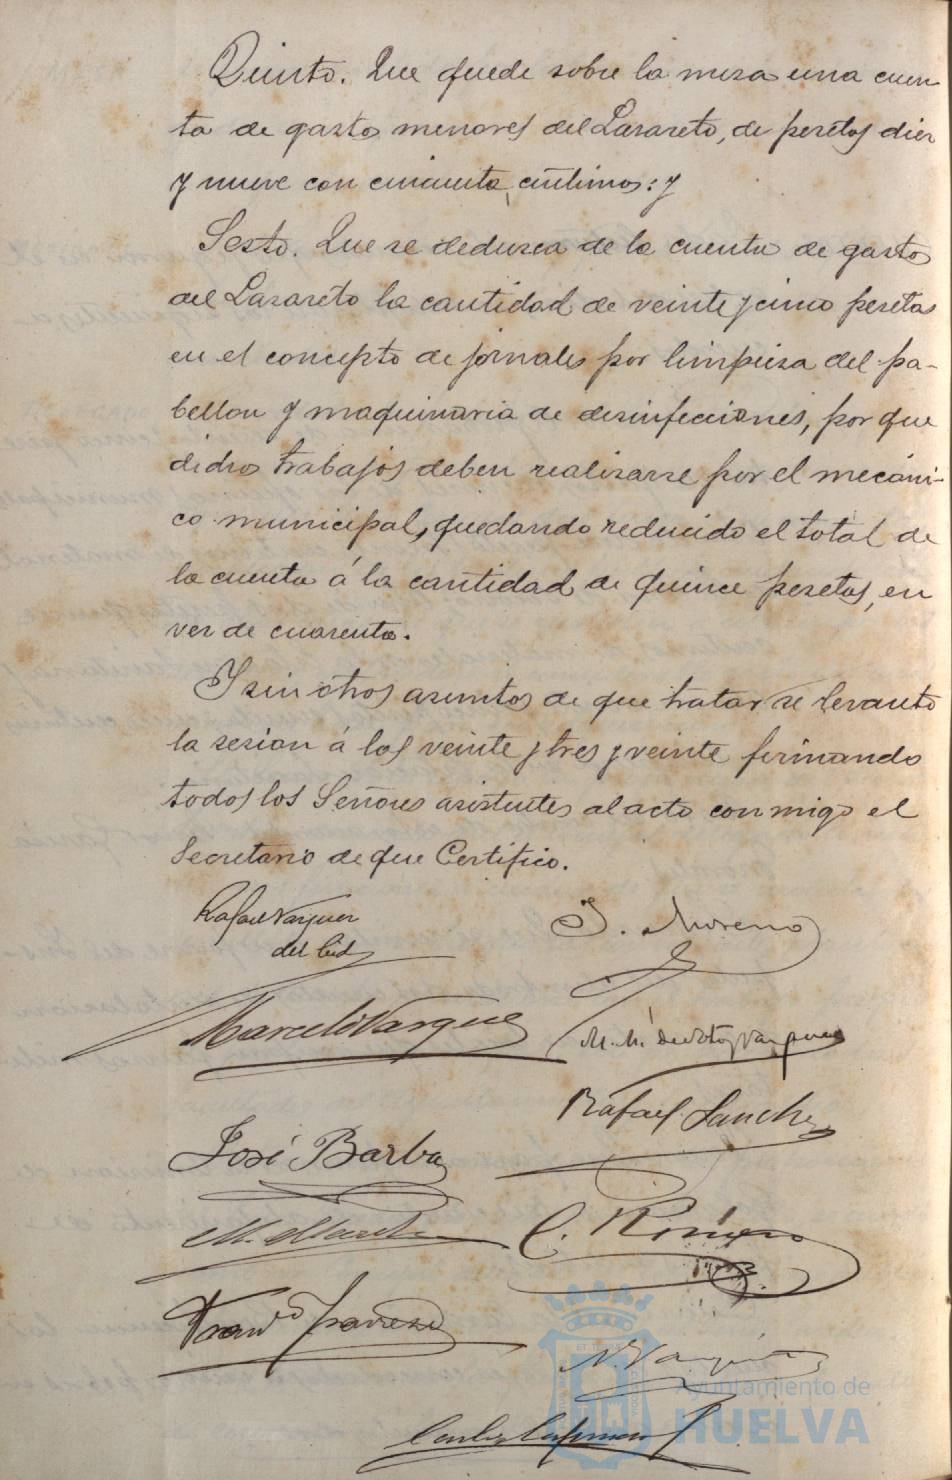 Quinto. Que quede sobre la mesa una cuen
ta de gastos menores del Lazareto, de pesetas diez
y nueve con cincuenta centimos: y
Sesto. Que se deduzca de la cuenta de gastos
del Lazareto la cantidad de veinte y cinco pesetas
en el concepto de jornales por limpieza del pa-
bellon y maquinaria de desinfecciones, por que
dichos trabajos deben realizarse por el mecáni-
co municipal, quedando reducido el total de
la cuenta á la cantidad de quince pesetas, en
vez de cuarenta.
Y sin otros asuntos de que tratar se levantó
la sesion á las veinte y tres y veinte firmando
todos los Señores asistentes al acto conmigo el
Secretario de que Certifico.
Rafael Vazquez
del Cid
J. Moreno
Marcelo Vazquez
M. M. de Soto Vazquez
Rafael Sanchez
José Barba
M.
C. Romero
Franco
N. Vazquez
Carlos
Ayuntamiento de
HUELVA